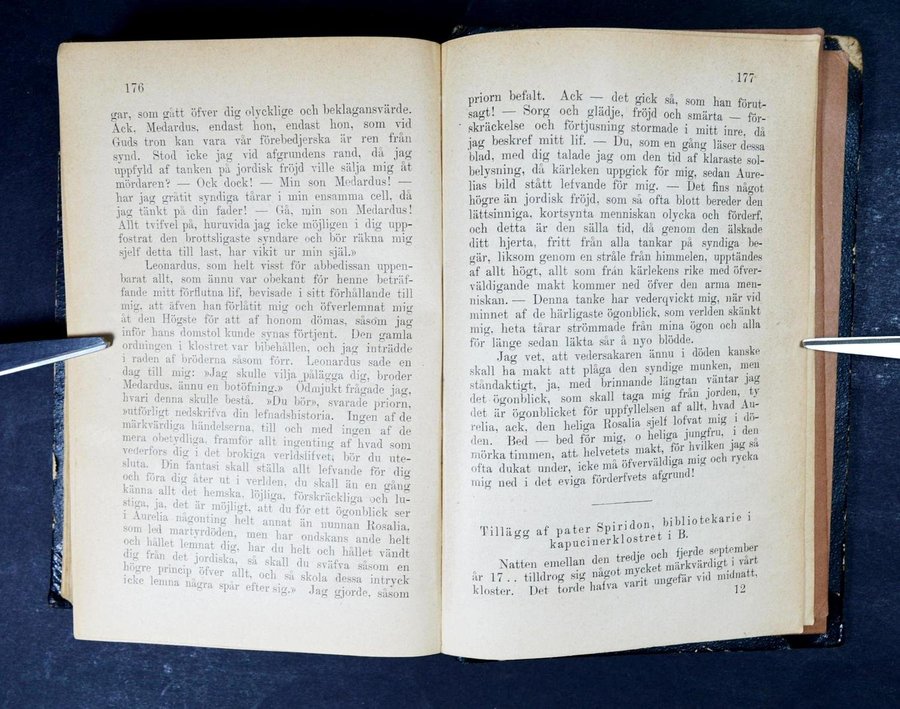 176
gar, som gått öfver dig olycklige och beklagansvärde.
Ack, Medardus, endast hon, endast hon, som vid
Guds tron kan vara vår förebedjerska är ren från
synd. Stod icke jag vid afgrundens rand, då jag
uppfyld af tanken på jordisk fröjd ville sälja mig åt
mördaren? — Ock dock! — Min son Medardus! —
har jag gråtit syndiga tårar i min ensamma cell, då
jag tänkt på din fader! — Gå, min son Medardus!
Allt tvifvel på, huruvida jag icke möjligen i dig upp-
fostrat den brottsligaste syndare och bör räkna mig
sjelf detta till last, har vikit ur min själ.»
Leonardus, som helt visst för abbedissan uppen-
barat allt, som ännu var obekant för henne beträf-
fande mitt förflutna lif, bevisade i sitt förhållande till
mig, att äfven han förlåtit mig och öfverlemnat mig
åt den Högste för att af honom dömas, såsom jag
inför hans domstol kunde synas förtjent. Den gamla
ordningen i klostret var bibehållen, och jag inträdde
i raden af bröderna såsom förr. Leonardus sade en
dag till mig: »Jag skulle vilja pålägga dig, broder
Medardus, ännu en botöfning.» Ödmjukt frågade jag,
hvari denna skulle bestå. »Du bör», svarade priorn,
»utförligt nedskrifva din lefnadshistoria. Ingen af de
märkvärdiga händelserna, till och med ingen af de
mera obetydliga, framför allt ingenting af hvad som
vederfors dig i det brokiga verldslifvet, bör du ute-
sluta. Din fantasi skall ställa allt lefvande för dig
och föra dig åter ut i verlden, du skall än en gång
känna allt det hemska, löjliga, förskräckliga och lu-
stiga, ja, det är möjligt, att du för ett ögonblick ser
i Aurelia någonting helt annat än nunnan Rosalia,
som led martyrdöden, men bar ondskans ande helt
och hållet lemnat dig, har du helt och hållet vändt
dig från det jordiska, så skall du sväfva såsom en
högre princip öfver allt, och så skola dessa intryck
icke lemna några spår efter sig.» Jag gjorde, såsom
177
priorn befalt. Ack — det gick så, som han förut-
sagt! — Sorg och glädje, fröjd och smärta — för-
skräckelse och förtjusning stormade i mitt inre, då
jag beskref mitt lif. — Du, som en gång läser dessa
blad, med dig talade jag om den tid af klaraste sol-
belysning, då kärleken uppgick för mig, sedan Aure-
lias bild stått lefvande för mig. — Det fins något
högre än jordisk fröjd, som så ofta blott bereder den
lättsinniga, kortsynta menniskan olycka och förderf,
och detta är den sälla tid, då genom den älskade
ditt hjerta, fritt från alla tankar på syndiga be-
gär, liksom genom en stråle från himmelen, upptändes
af allt högt, allt som från kärlekens rike med öfver-
väldigande makt kommer ned öfver den arma men-
niskan. — Denna tanke har vederqvickt mig, när vid
minnet af de härligaste ögonblick, som verlden skänkt
mig, heta tårar strömmade från mina ögon och alla
för länge sedan läkta sår å nyo blödde.
Jag vet, att vedersakaren ännu i döden kanske
skall ha makt att plåga den syndige munken, men
ståndaktigt, ja, med brinnande längtan väntar jag
det ögonblick, som skall taga mig från jorden, ty
det är ögonblicket för uppfyllelsen af allt, hvad Au-
relia, ack, den heliga Rosalia sjelf lofvat mig i dö-
den. Bed — bed för mig, o heliga jungfru, i den
mörka timmen, att helvetets makt, för hvilken jag så
ofta dukat under, icke må öfverväldiga mig och rycka
mig ned i det eviga förderfvets afgrund!
Tillägg af pater Spiridon, bibliotekarie i
kapucinerklostret i B.
Natten emellan den tredje och fjerde september
år 17 . . tilldrog sig något mycket märkvärdigt i vårt
kloster. Det torde hafva varit ungefär vid midnatt,
12